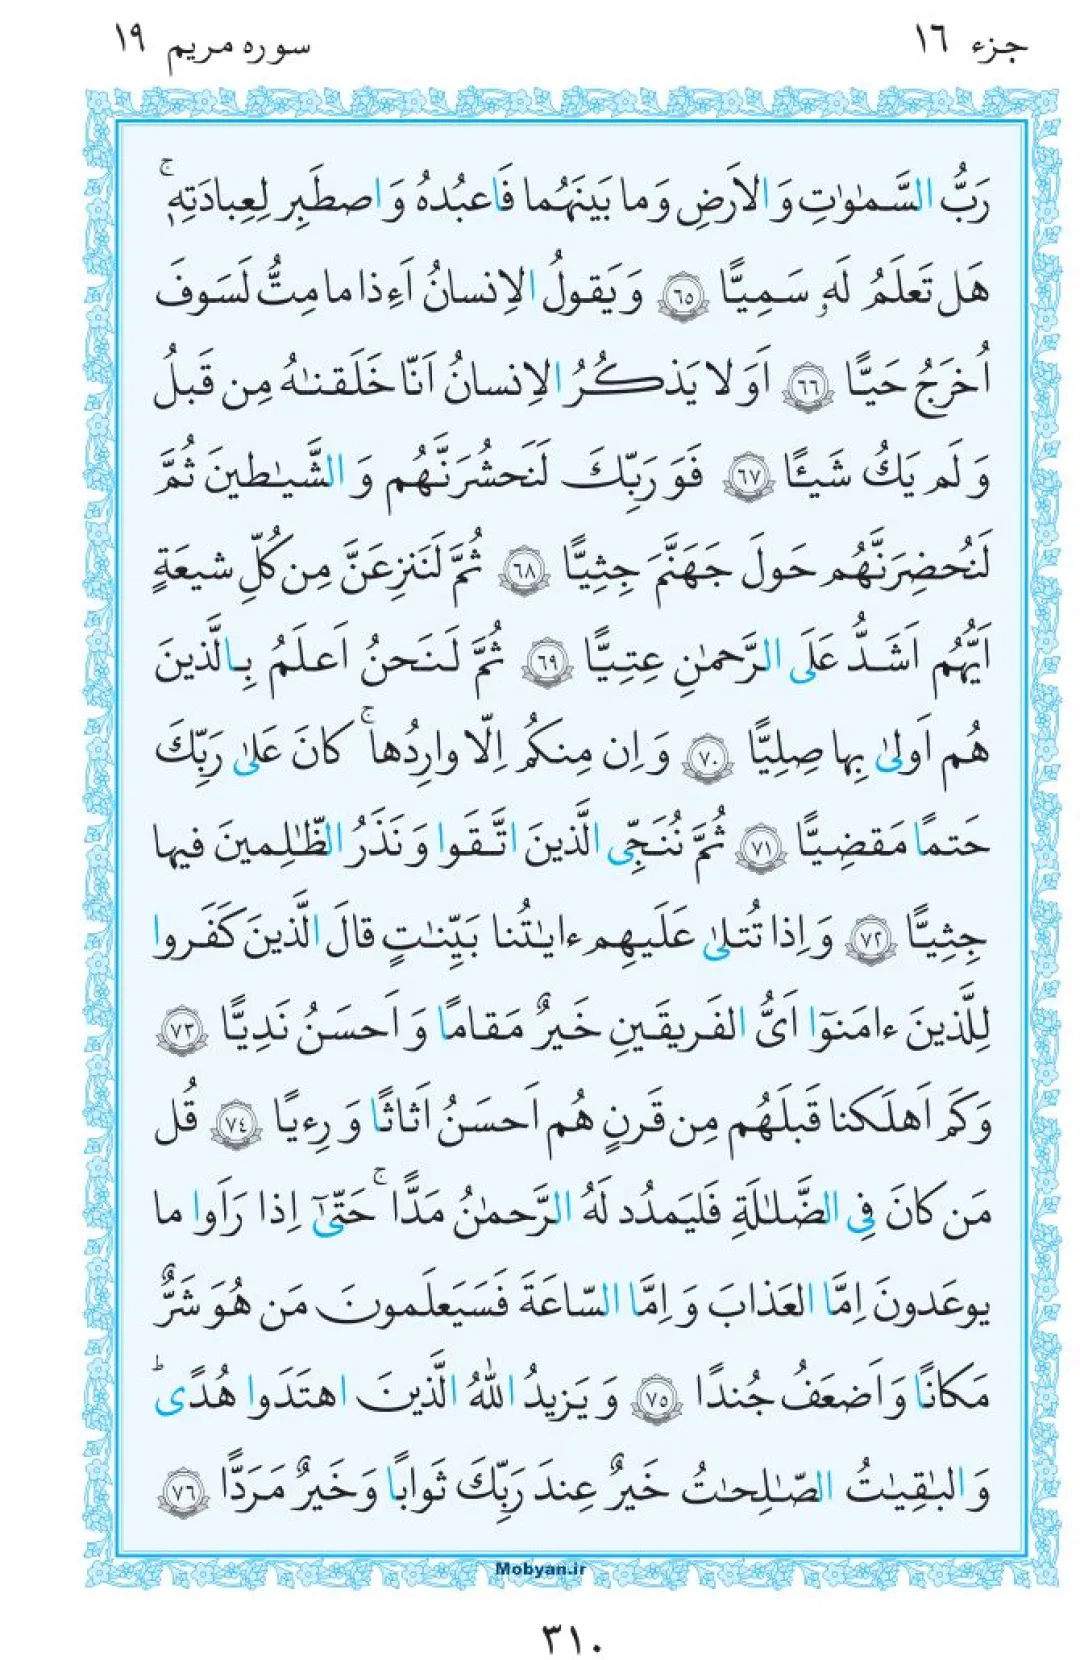 جزء ١٦
سوره مریم ١٩
رَبُّ السَّمـٰوٰتِ وَ الاَرضِ وَ ما بَینَهُما فَاعبُدهُ وَ اصطَبِر لِعِبادَتِهٖۚ
هَل تَعلَمُ لَهٗ سَمِیًّا ﴿٦٥﴾ وَ یَقولُ الاِنسانُ اَءِذا ما مِتُّ لَسَوفَ
اُخرَجُ حَیًّا ﴿٦٦﴾ اَوَ لا یَذکُرُ الاِنسانُ اَنّا خَلَقنـٰهُ مِن قَبلُ
وَ لَم یَكُ شَیـًٔا ﴿٦٧﴾ فَوَ رَبِّكَ لَنَحشُرَنَّهُم وَ الشَّیـٰطینَ ثُمَّ
لَنُحضِرَنَّهُم حَولَ جَهَنَّمَ جِثِیًّا ﴿٦٨﴾ ثُمَّ لَنَنزِعَنَّ مِن كُلِّ شیعَةٍ
اَیُّهُم اَشَدُّ عَلَی الرَّحمـٰنِ عِتِیًّا ﴿٦٩﴾ ثُمَّ لَنَحنُ اَعلَمُ بِالَّذینَ
هُم اَولیٰ بِها صِلِیًّا ﴿٧٠﴾ وَ اِن مِنكُم اِلّا وارِدُهاۚ كانَ عَلیٰ رَبِّكَ
حَتمًا مَقضِیًّا ﴿٧١﴾ ثُمَّ نُنَجِّی الَّذینَ اتَّقَوا وَ نَذَرُ الظّٰلِمینَ فیها
جِثِیًّا ﴿٧٢﴾ وَ اِذا تُتلیٰ عَلَیهِم ءایـٰتُنا بَیِّنـٰتٍ قالَ الَّذینَ كَفَروا
لِلَّذینَ ءامَنوٓا اَیُّ الفَریقَینِ خَیرٌ مَقامًا وَ اَحسَنُ نَدِیًّا ﴿٧٣﴾
وَ كَم اَهلَكنا قَبلَهُم مِن قَرنٍ هُم اَحسَنُ اَثاثًا وَ رِءیًا ﴿٧٤﴾ قُل
مَن كانَ فِی الضَّلـٰلَةِ فَلیَمدُد لَهُ الرَّحمـٰنُ مَدًّاۚ حَتّیٰٓ اِذا رَاَوا ما
یوعَدونَ اِمَّا العَذابَ وَ اِمَّا السّاعَةَ فَسَیَعلَمونَ مَن هُوَ شَرٌّ
مَكانًا وَ اَضعَفُ جُندًا ﴿٧٥﴾ وَ یَزیدُ اللّٰهُ الَّذینَ اهتَدَوا هُدًیؕ
وَ البـٰقِیـٰتُ الصّٰلِحـٰتُ خَیرٌ عِندَ رَبِّكَ ثَوابًا وَ خَیرٌ مَرَدًّا ﴿٧٦﴾
Mobyan.ir
٣١٠